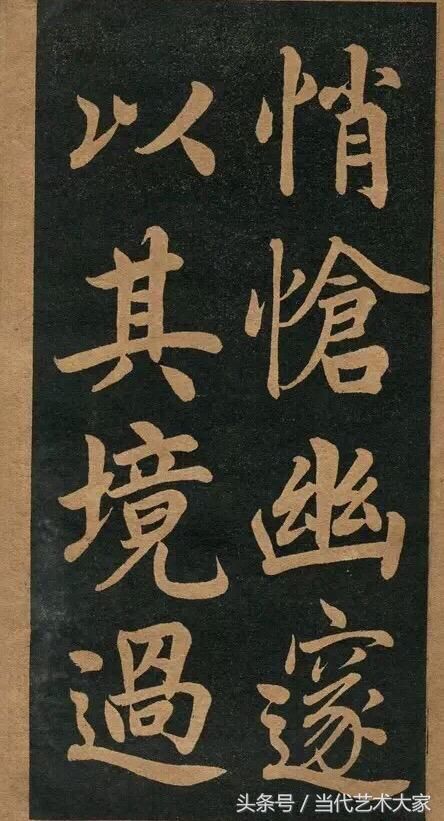 悄愴幽邃
以其境過
头条号／当代艺术大家